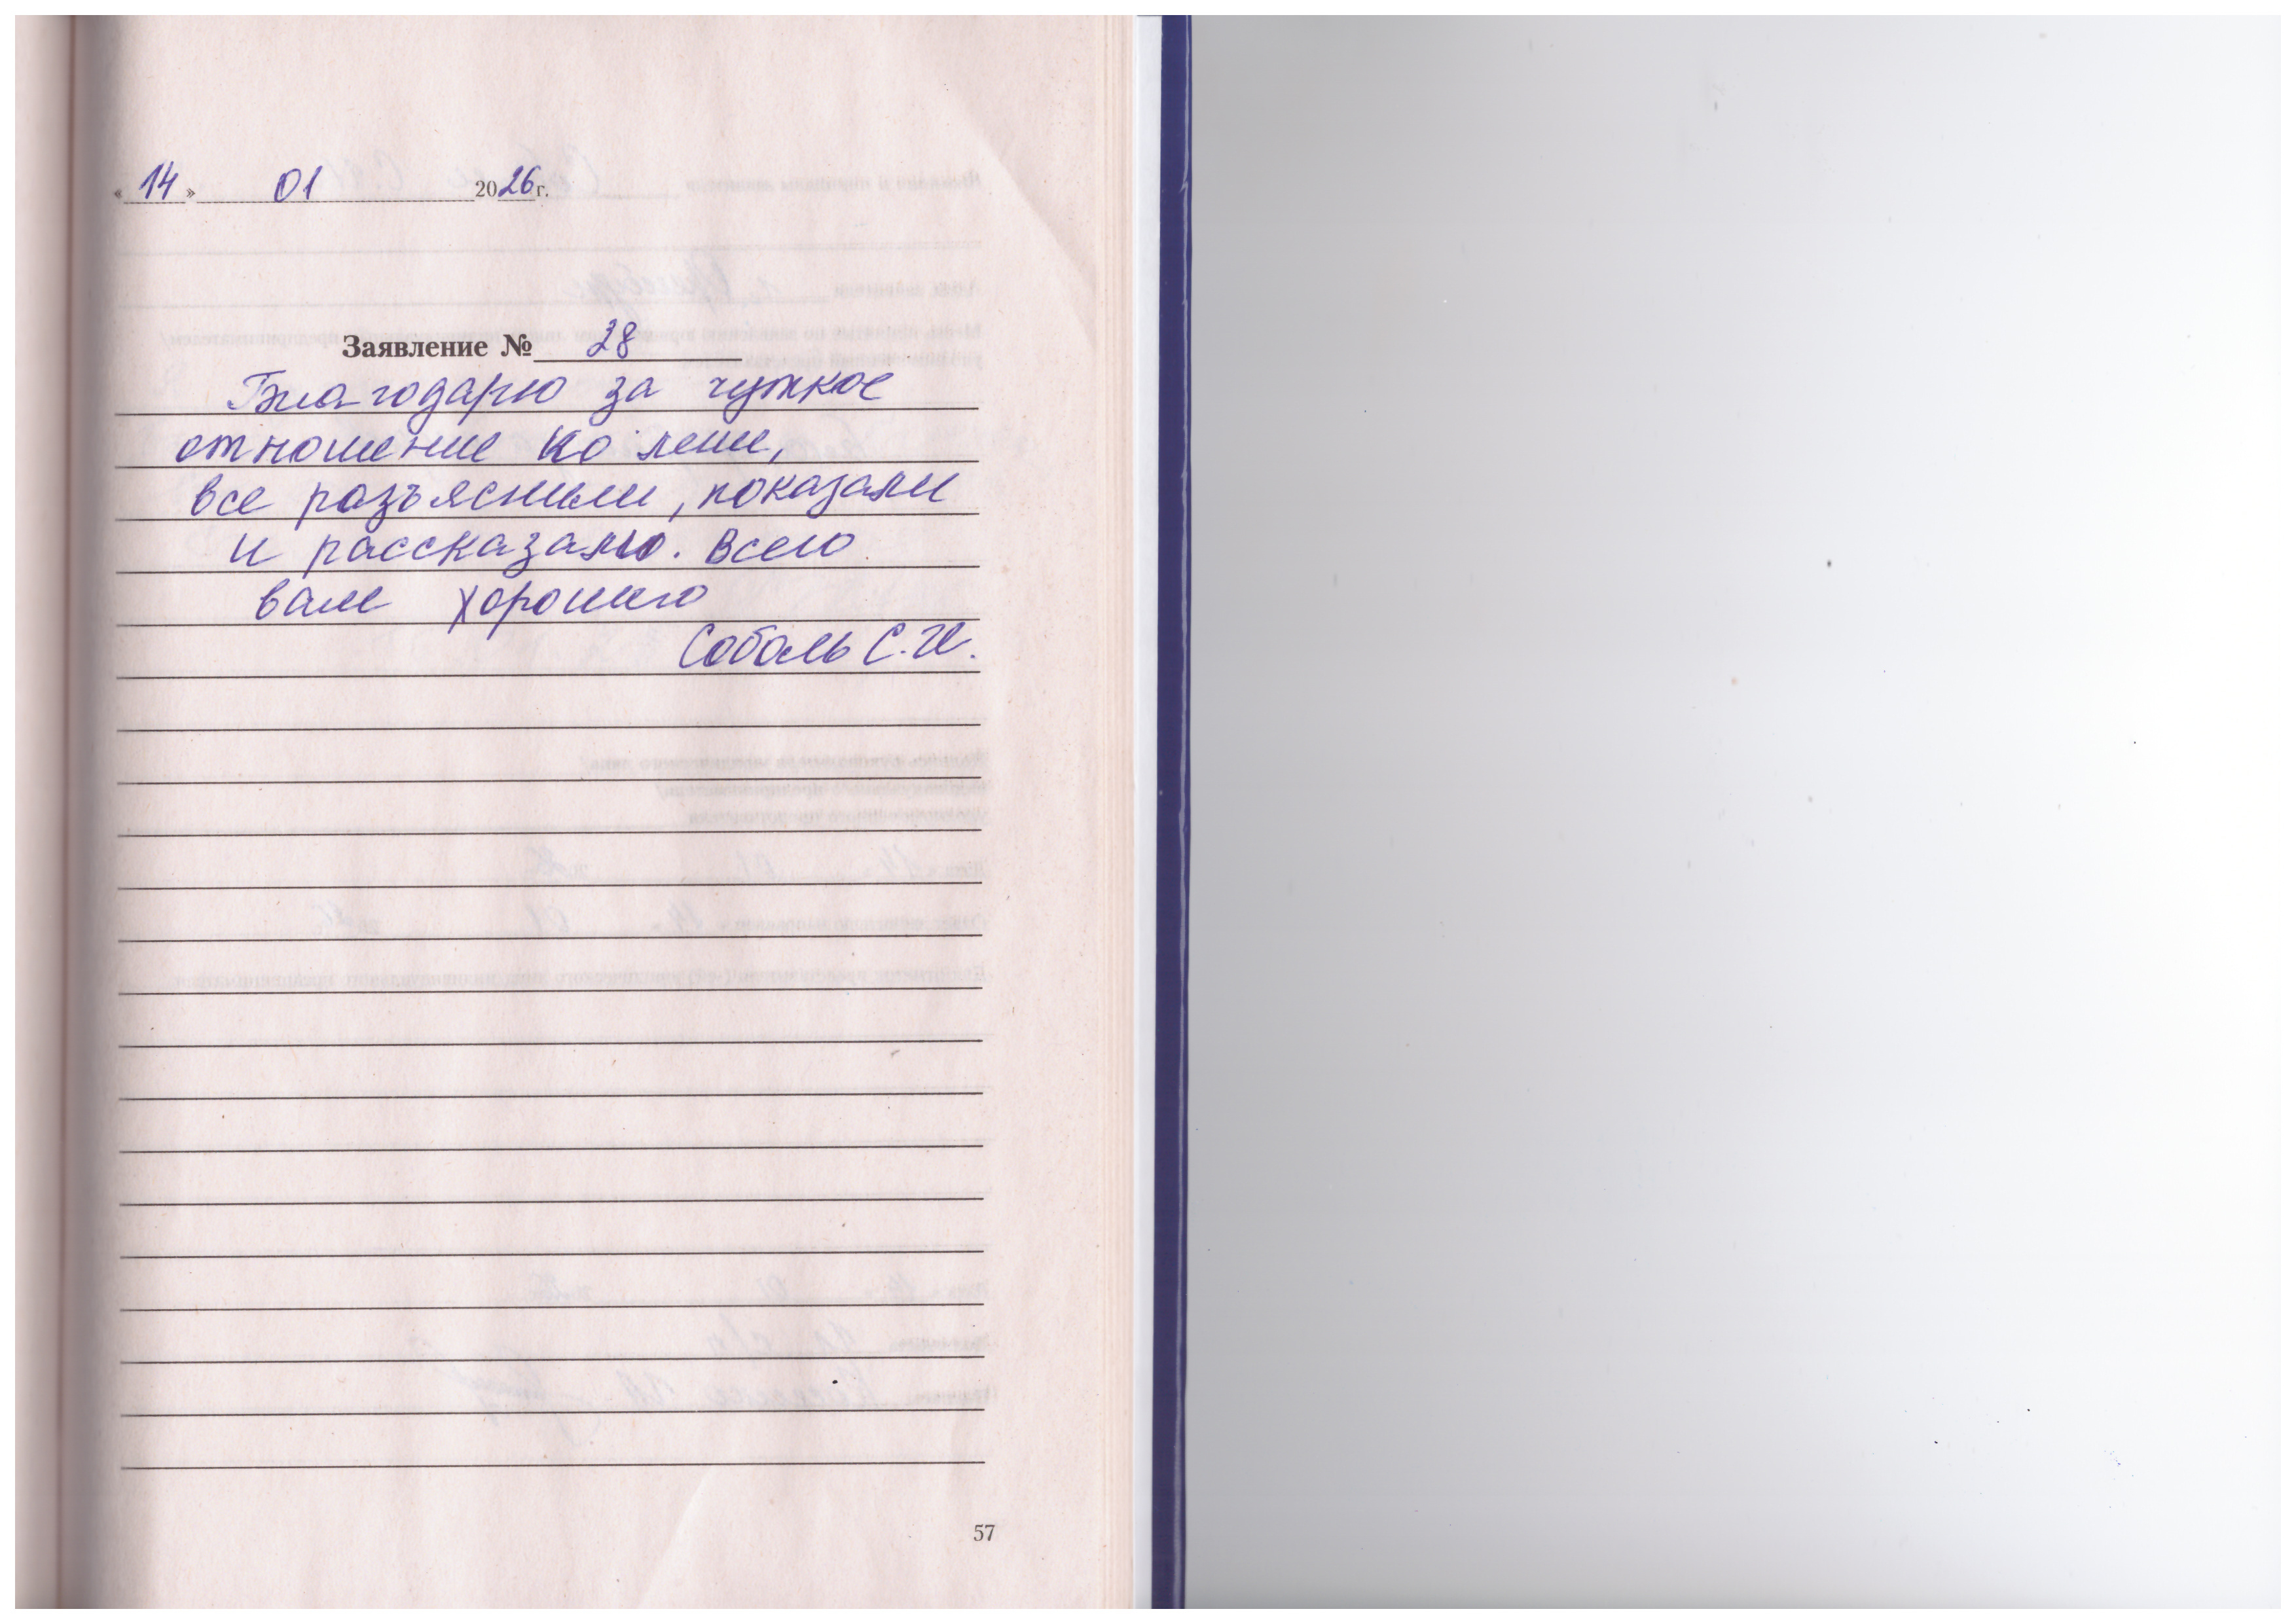 «14» 01 2026г.
Заявление № 28
Благодарю за чуткое
отношение ко мне,
все разъяснили, показали
и рассказали. Всего
вам хорошего
Соболь С.И.
57